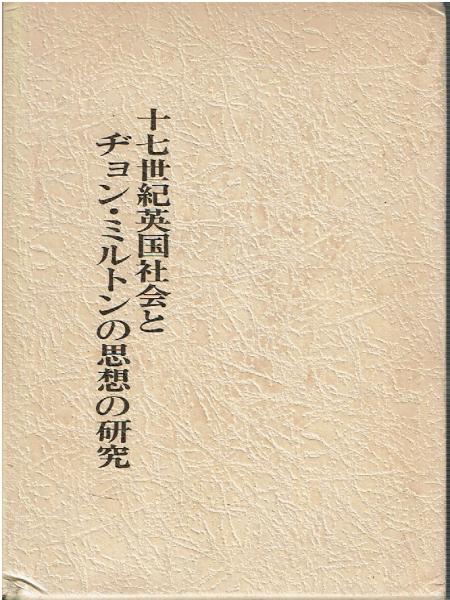 十七世紀英国社会と
ヂョン・ミルトンの思想の研究